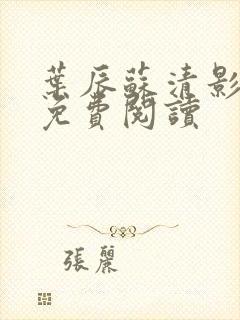 葉辰蘇清影
免費閱讀
張麗